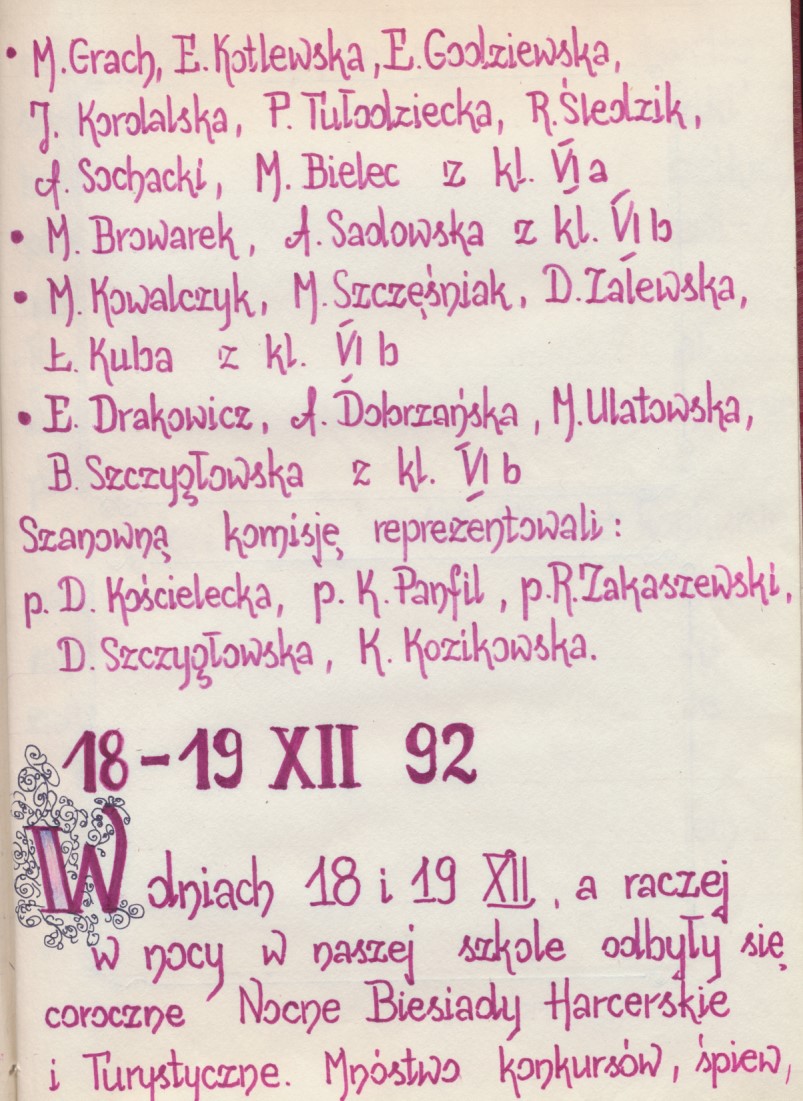 • M. Grach, E. Kotlewska, E. Godziewska,
J. Kordalska, P. Tułodziecka, R. Śledzik,
A. Sochacki, M. Bielec z kl. VI a
• M. Browarek, A. Sadowska z kl. VI b
• M. Kowalczyk, M. Szczęśniak, D. Zalewska,
Ł. Kuba z kl. VI b
• E. Drakowicz, A. Dobrzańska, M. Ulatowska,
B. Szczygłowska z kl. VI b
Szanowną komisję reprezentowali:
p. D. Kościelecka, p. K. Panfil, p. R. Zakaszewski,
D. Szczygłowska, K. Kozikowska.
18-19 XII 92
W dniach 18 i 19 XII, a raczej
w nocy w naszej szkole odbyły się
coroczne Nocne Biesiady Harcerskie
i Turystyczne. Mnóstwo konkursów, śpiew,